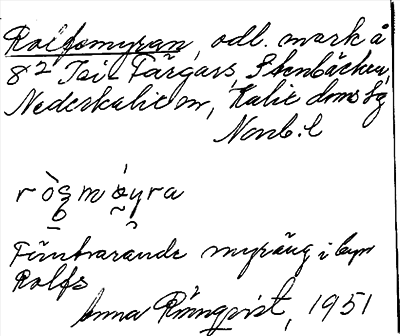 Rolfsmyran, odl. mark å
8² Isi-Färgars, Stenbäcken,
Nederkalix sn, Kalix doms. sg
Nonb. l
ròs̱mýra
Försvarande myräng i byn
Rolfs
Anna Rönnqvist, 1951